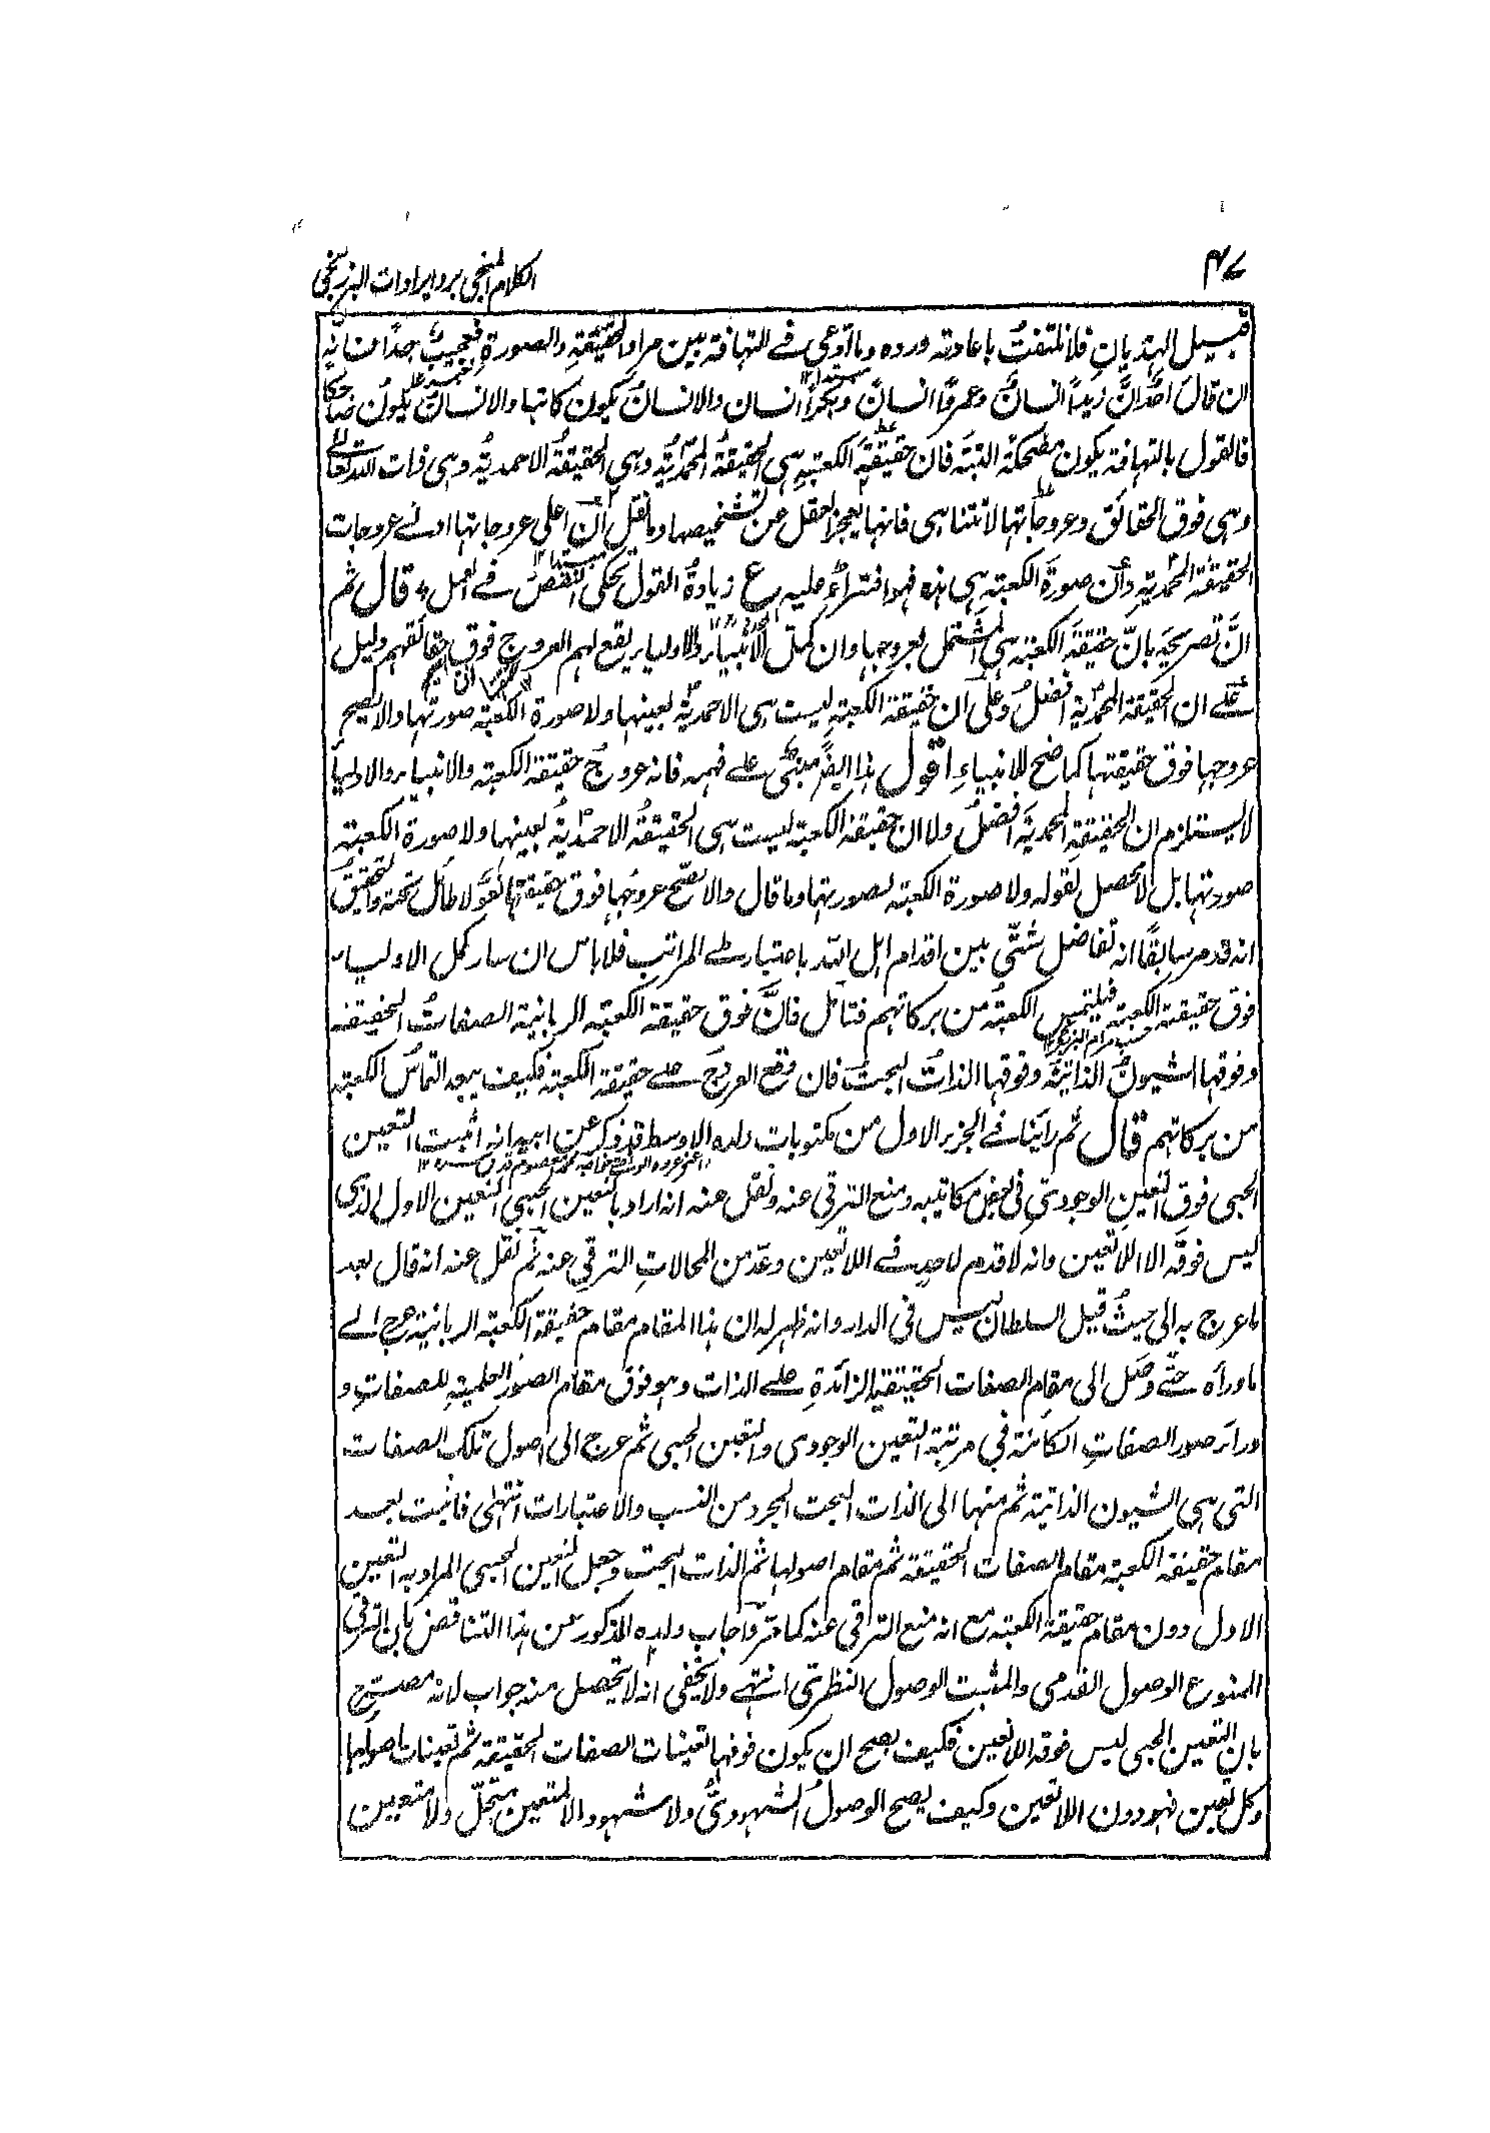 ٤٧
الكلام المنجي برد ايرادات البرزنجي
قبيل الهذيان فلا نلتفت باعادته ورده وما ادعى في التهافة بين مراد الحقيقة والصورة فعجيب جدا منا نه
ان قال احد ان زيدا انسان وعمروا انسان وبكرا انسان والانسان يكون كاتبا والانسان يكون ضاحكا
فالقول بالتهافة يكون مضحكة البتة فان حقيقة الكعبة هي الحقيقة المحمدية وهي الحقيقة الاحمدية وهي ذات الله تعالى
وهي فوق الحقائق وعروجاتها لا تتناهى فانها يعجز العقل عن تشخيصها وما نقل ان اعلى عروجاتها ادنى عروجات
الحقيقة المحمدية وان صورة الكعبة هي هذه فهو افتراء عليه ع زيادة القول تحكي النقص في العمل قال ثم
ان تصريحه بان حقيقة الكعبة هي المشتمل بعروجها وان كمل الانبياء والاولياء يقع لهم العروج فوق حقائقهم دليل
على ان الحقيقة المحمدية افضل وعلى ان حقيقة الكعبة ليست هي الاحمدية بعينها ولا صورة الكعبة صورتها والا لصح
عروجها فوق حقيقتها كما صح للانبياء اقول هذا ايضا مبني على فهمه فانه عروج حقيقة الكعبة والانبياء والاوليا
لا يستلزم ان الحقيقة المحمدية افضل ولا ان حقيقة الكعبة ليست هي الحقيقة الاحمدية بعينها ولا صورة الكعبة
صورتها بل لا محصل لقوله ولا صورة الكعبة بصورتها وما قال والا لصح عروجها فوق حقيقتها لغو لا طائل تحته والتحقيق
انه قد مر سابقا انه تفاضل شتى بين اقدام اهل الله باعتبار طي المراتب فلا باس ان سار كمل الاولياء
فوق حقيقة الكعبة فيلتمس الكعبة من بركاتهم فتامل فان فوق حقيقة الكعبة الربانية الصفات الحقيقة
حسب مرام البرزنجي ١٢
وفوقها الشيون الذاتية وفوقها الذات البحت فان وقع العروج على حقيقة الكعبة فكيف يبعد التماس الكعبة
من بركاتهم قال ثم راينا في الجزء الاول من مكتوبات ولده الاوسط قد ذكر عن ابيه انه اثبت التعين
اعني عروة الوثقى خواجه محمد معصوم قدس سره ١٢
الحبي فوق التعين الوجودي في بعض مكاتيبه ومنع الترقي عنه ونقل عنه انه اراد بالتعين الحبي التعين الاول الذي
ليس فوقه الا اللا تعين وانه لا قدم لاحد في اللا تعين وعد من المحالات الترقي عنه ثم نقل عنه انه قال بعد
ما عرج به الى حيث قيل السلطان ليس في الدار وانه ظهر له ان هذا المقام مقام حقيقة الكعبة الربانية عرج الى
ما وراه حتى وصل الى مقام الصفات الحقيقية الزائدة على الذات وهو فوق مقام الصور العلمية للصفات و
وراء صور الصفات الكائنة في مرتبة التعين الوجودي والتعين الحبي ثم عرج الى اصول تلك الصفات
التي هي الشيون الذاتية ثم منها الى الذات البحت المجرد من النسب والاعتبارات انتهى فاثبت بعد
مقام حقيقة الكعبة مقام الصفات الحقيقة ثم مقام اصولها ثم الذات البحت وجعل التعين الحبي المراد به التعين
الاول دون مقام حقيقة الكعبة مع انه منع الترقي عنه كما مر واجاب ولده المذكور عن هذا التناقض بان الترقي
الممنوع الوصول القدمي والمثبت الوصول النظري انتهى ولا يخفى انه لا يتحصل منه جواب لانه مصرح
بان التعين الحبي ليس فوقه اللا تعين فكيف يصح ان يكون فوقها تعينات الصفات الحقيقة ثم تعينات اصولها
وكل تعين فهو دون اللا تعين وكيف يصح الوصول الشهودي ولا مشهود الا لمتعين متجل ولا متعين